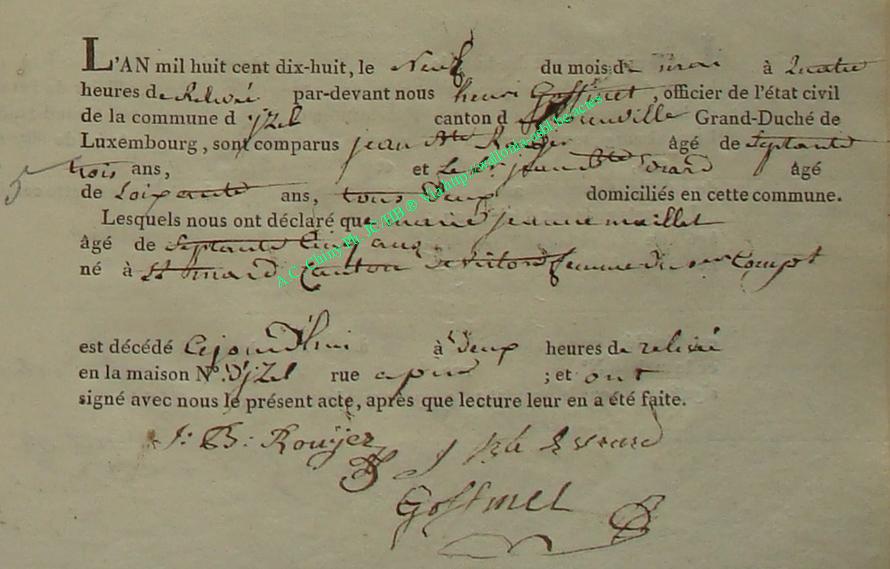 L'AN mil huit cent dix-huit, le Neuf du mois de mai à quatre
heures de Relevé par-devant nous henri Goffinet, officier de l'état civil
de la commune d'jzel canton d Grand-Duché de
Luxembourg, sont comparus jean Bte Rouyer âgé de Septante
trois ans, et Le Sr. jean Bte Evrard âgé
de Soixante ans, tous deux domiciliés en cette commune.
Lesquels nous ont déclaré que marie jeanne maillet
âgé de Septante Cinq ans
né à St mard Canton de virton femme du 1er Compt
est décédé Cejourd'hui à deux heures de relevé
en la maison N° d'jzel rue ; et ont
signé avec nous le présent acte, après que lecture leur en a été faite.
J: B: Rouÿer
J Bte Evrard
Goffinet